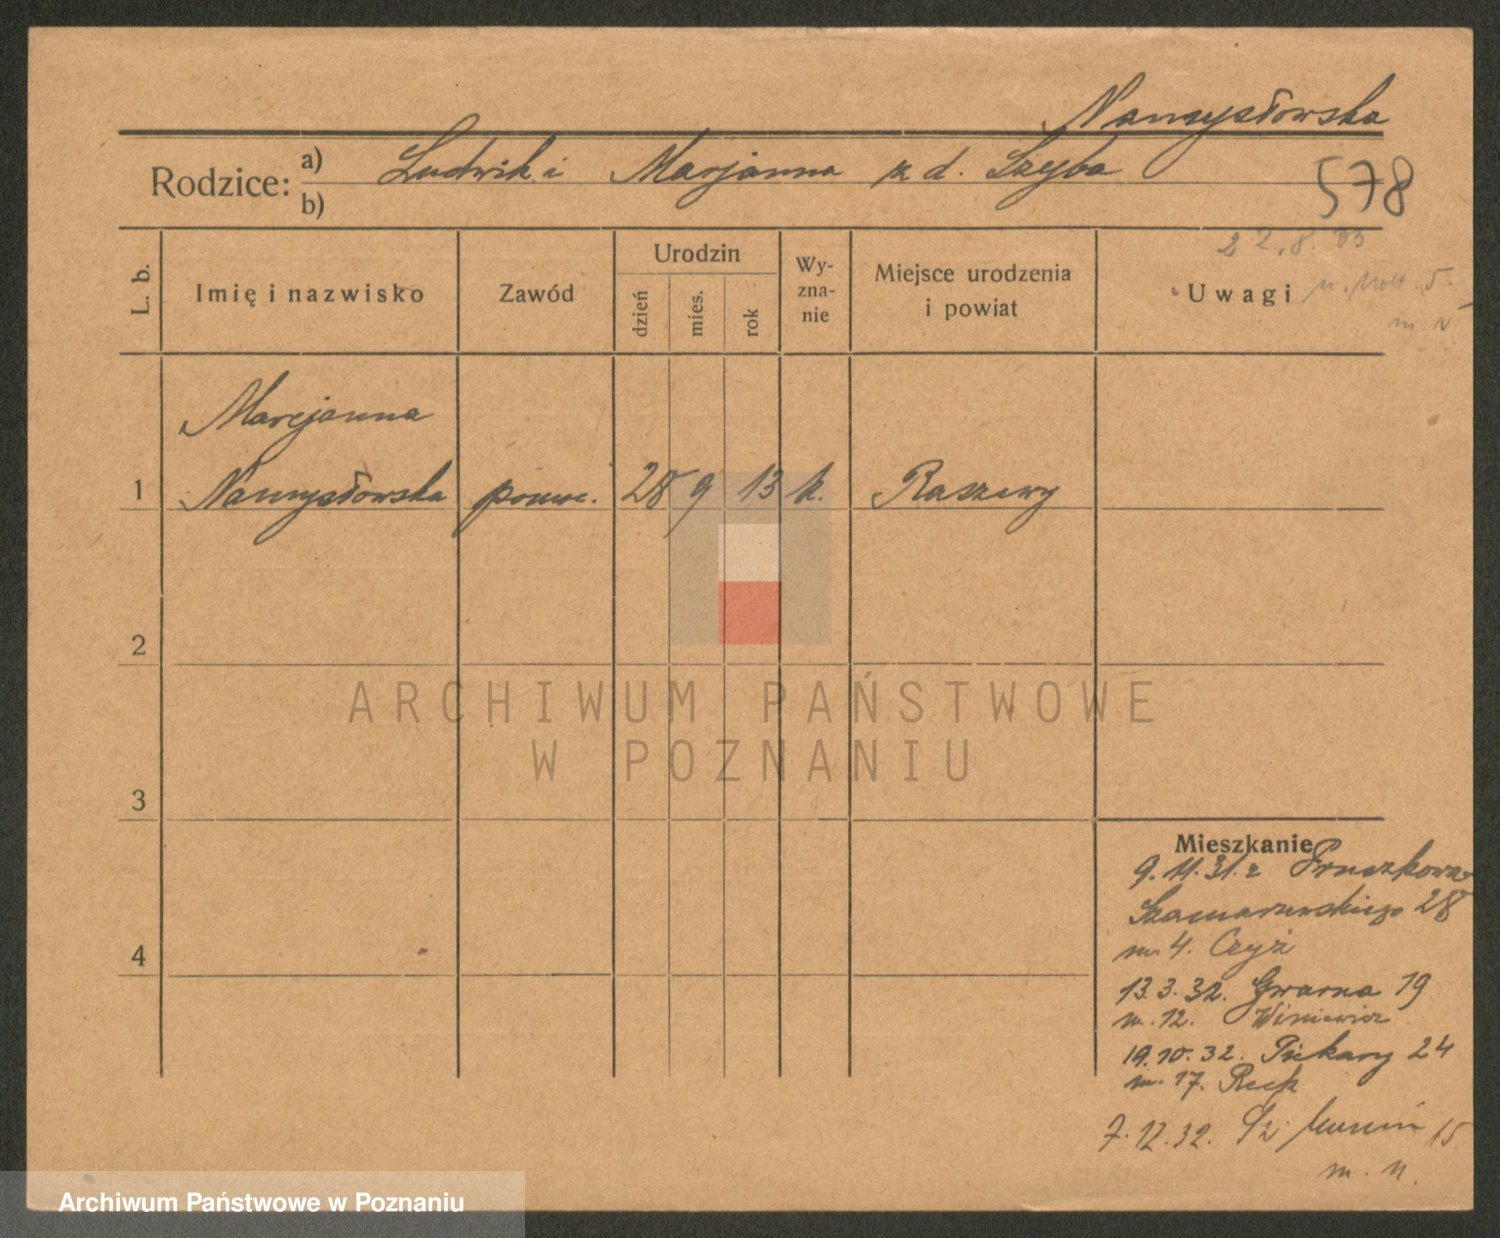 Namysłowska
Rodzice: a) Ludwik i Marjanna z d. Szyba
b)
578
22.8.33
L. b.
Imię i nazwisko
Zawód
Urodzin
dzień
mies.
rok
Wy-
zna-
nie
Miejsce urodzenia
i powiat
Uwagi
Marjanna
1 Namysłowska pomoc. 28 9 13 k. Raszewy
2
3
4
ARCHIWUM PAŃSTWOWE
W POZNANIU
Mieszkanie
9.11.31. z Pruszkowa
Szamarzewskiego 28
m. 4. Czyż
13.3.32. Gwarna 19
m. 12. Winiewicz
19.10.32. Piekary 24
m. 17.
7.12.32. 15
m. 11.
Archiwum Państwowe w Poznaniu